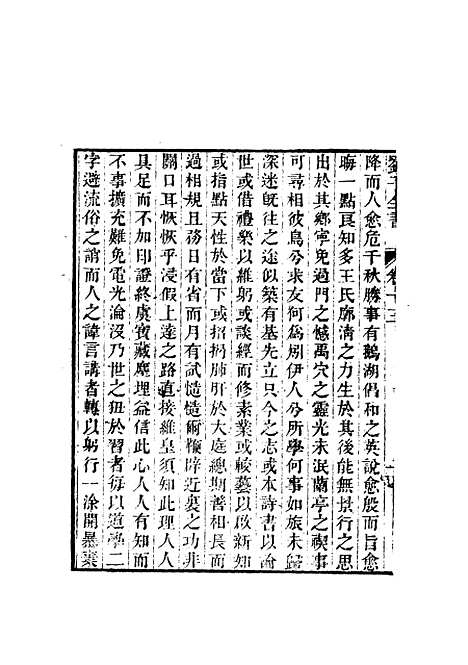 劉子全書 卷十三
降而人愈危千秋勝事有鵝湖倡和之英說愈殷而旨愈
晦一點良知多王氏廓清之力生於其後能無景行之思
出於其鄉寧免過門之憾禹穴之靈光未泯蘭亭之禊事
可尋相彼鳥兮求友何為別伊人兮所學何事如旅未歸
深迷旣往之途似築有基先立只今之志或本詩書以論
世或借禮樂以維躬或談經而修素業或較藝以啟新知
或指點天性於當下或招捫肺肝於大庭總期善相長而
過相規且務日有省而月有試慥慥爾鞭辟近裏之功非
關口耳恢恢乎浸假上達之路直接維皇須知此理人人
具足而不加印證終虞寶藏塵埋益信此心人人有知而
不事擴充難免電光淪沒乃世之狃於習者每以道學二
字避流俗之誚而人之諱言講者轉以躬行一涂開暴棄